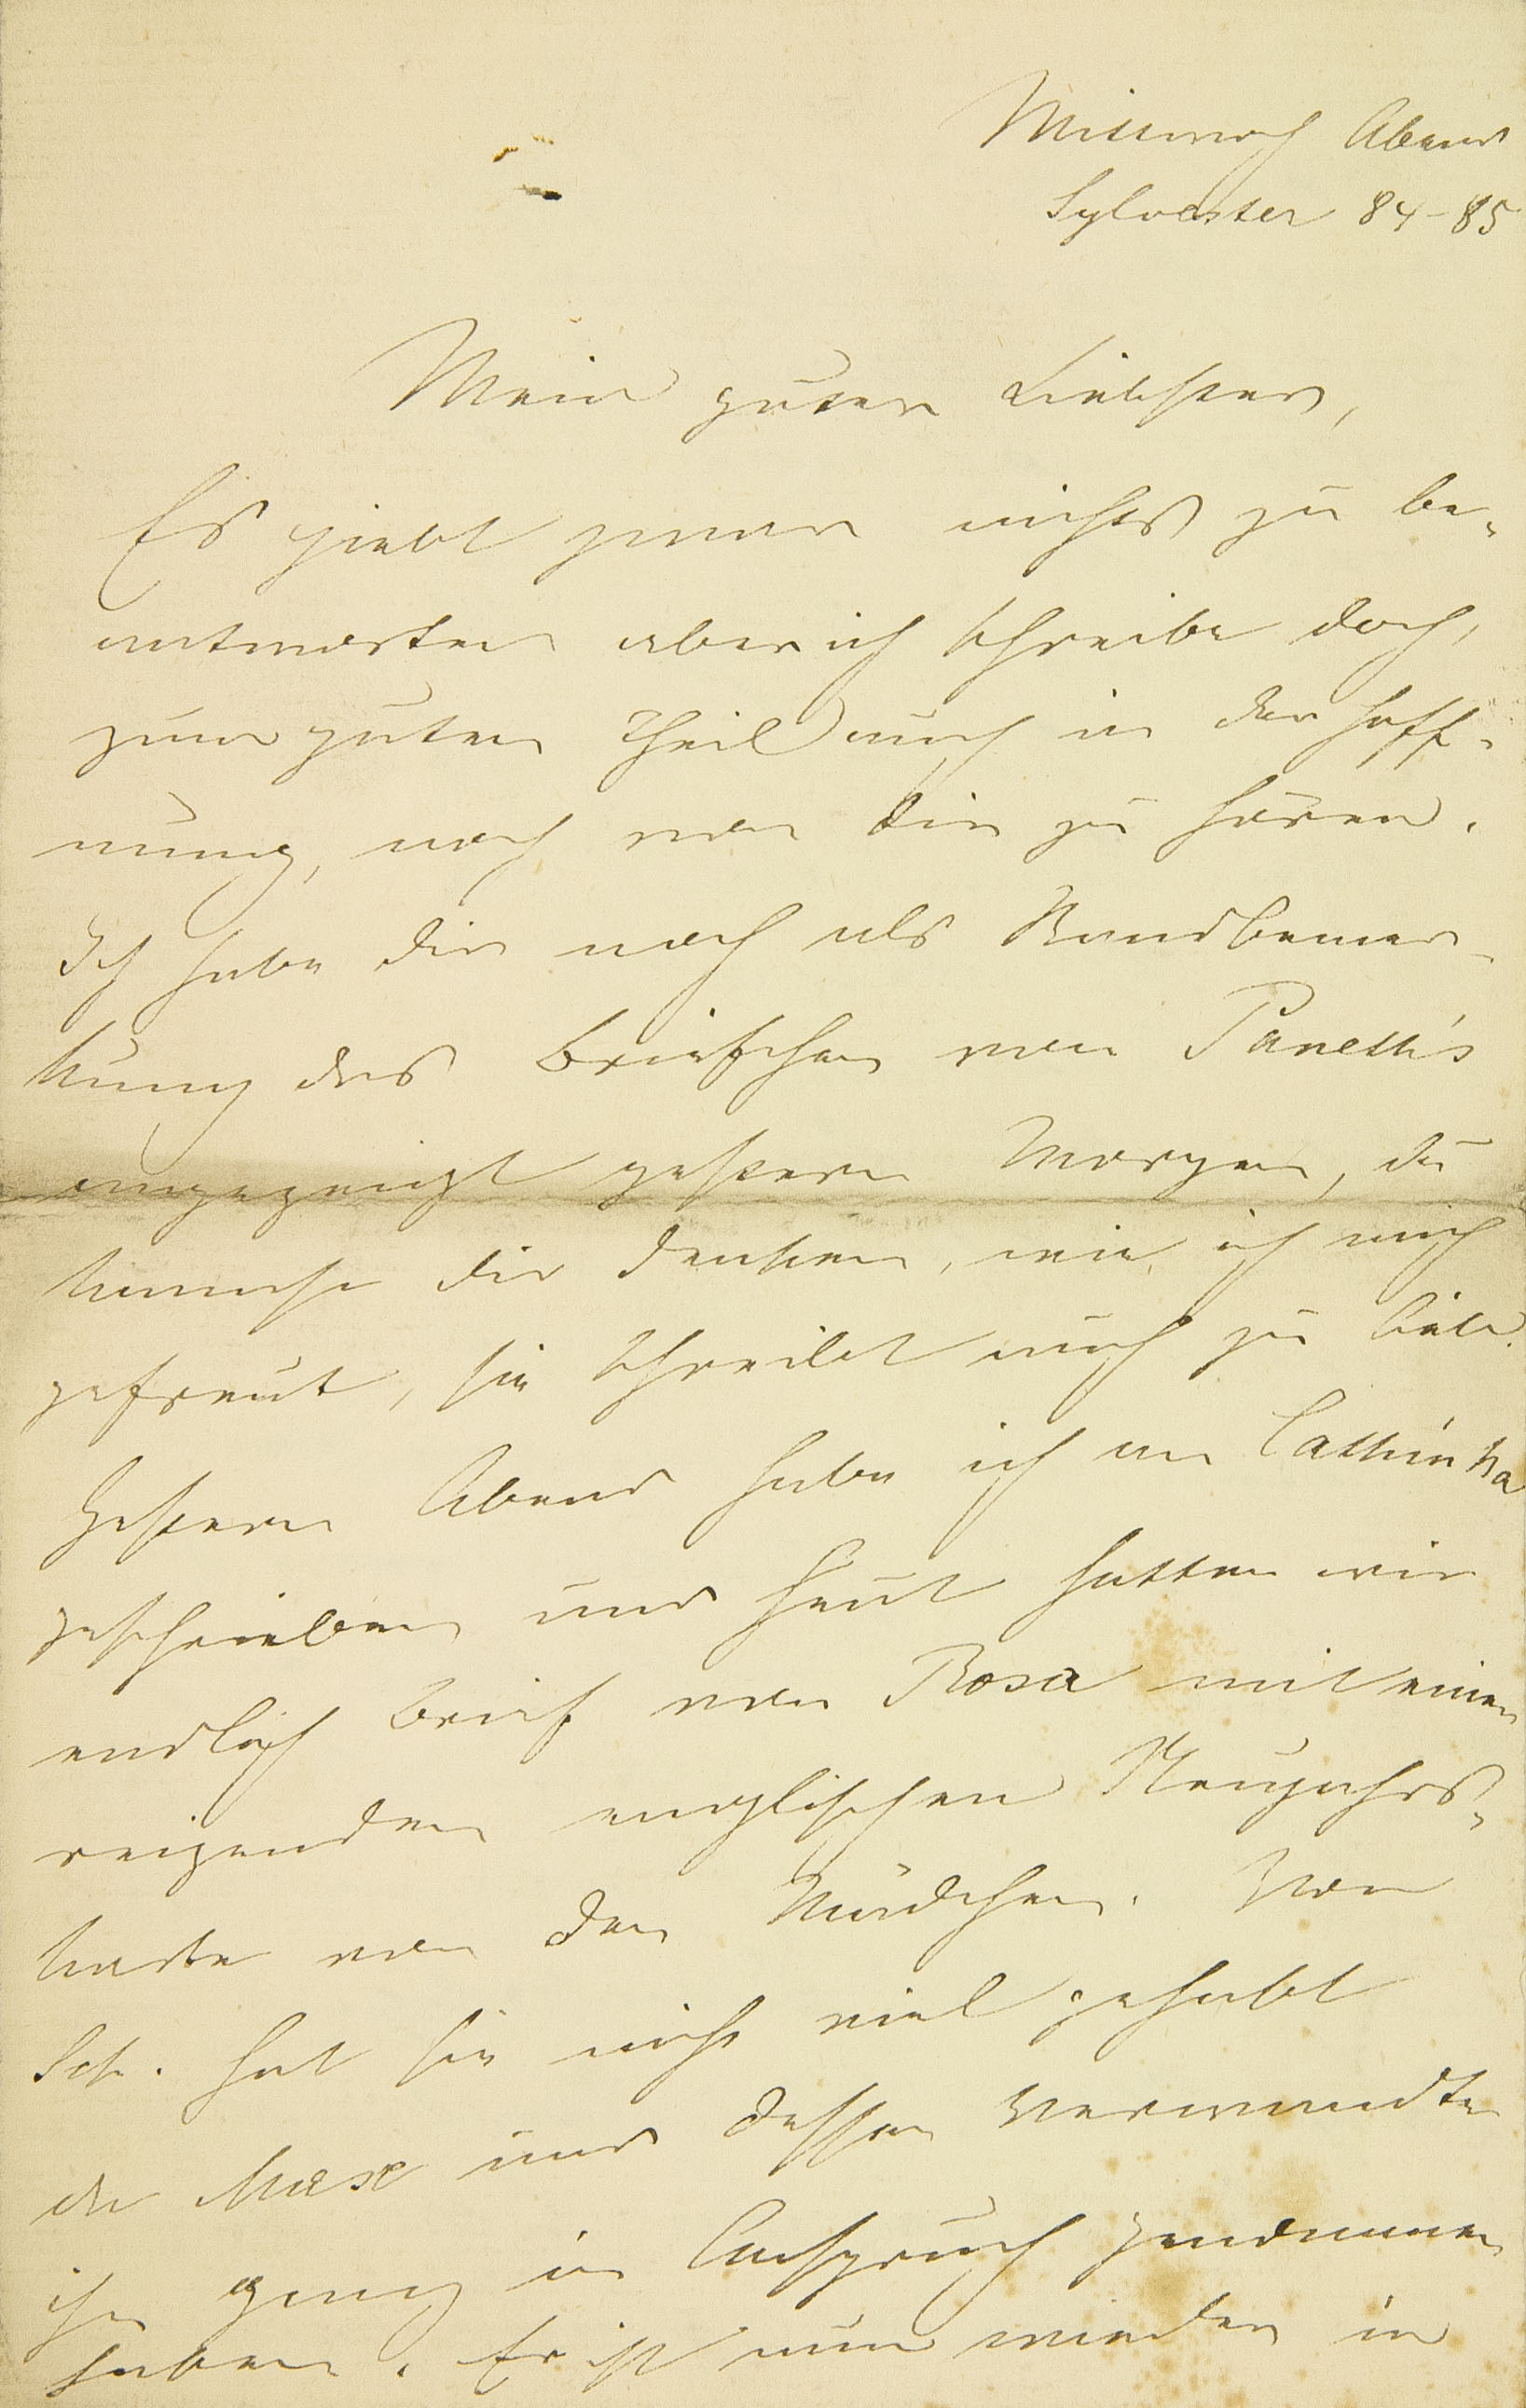 Mittwoch Abend
Sylvester 84–85
Mein guter Liebster,
Es giebt zwar nichts zu be-
antworten aber ich schreibe doch,
zum guten Theil auch in der Hoff-
nung, noch von dir zu hören.
Ich habe dir noch als Randbemer-
kung das Briefchen von Paneth's
angezeigt gestern Morgen, du
kannst dir denken, wie ich mich
gefreut, sie schreibt auch zu lieb.
Gestern Abend habe ich an Cathinka
geschrieben und heut hatten wir
endlich Brief von Rosa mit einer
reizenden englischen Neujahrs-
karte von den Mädchen. Von
Sch. hat sie nicht viel gehabt
da Max und dessen Verwandte
ihn ganz in Anspruch genommen
haben. Er ist nun wieder in